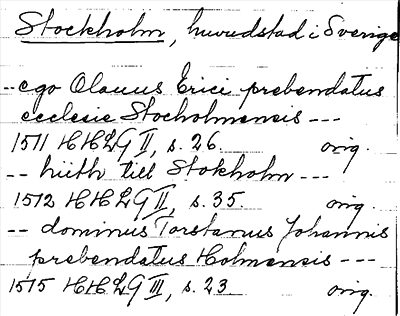 Stockholm, huvudstad i Sverige
-- ego Olauus Erici prebendatus
ecclesie Stocholmensis ---
1511 HHLG II, s. 26. orig.
-- hiith till Stokholm ---
1512 HHLG II, s. 35. orig.
-- dominus Torstanus Johannis
prebendatus Holmensis ---
1515 HHLG III, s. 23 orig.